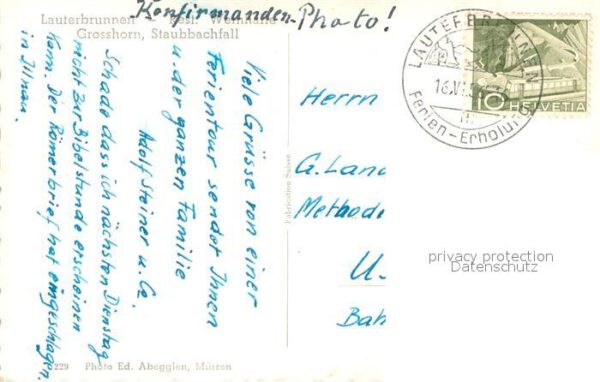 Konfirmanden-Photo!
Lauterbrunnen
Grosshorn, Staubbachfall
Viele Grüsse von einer
Ferientour sendet Ihnen
u. der ganzen Familie
Adolf Steiner u. Ce.
Schade dass ich nächsten Dienstag
nicht zur Bibelstunde erscheinen
kann. Der Römerbrief hat eingeschlagen
in Illnau.
Fabrication Suisse
229 Photo Ed. Abegglen, Mürren
LAUTERBRUNNEN
16.V
Ferien-Erholung
10 HELVETIA
Herrn
G. Land
Methodi
U.
Bah
privacy protection
Datenschutz